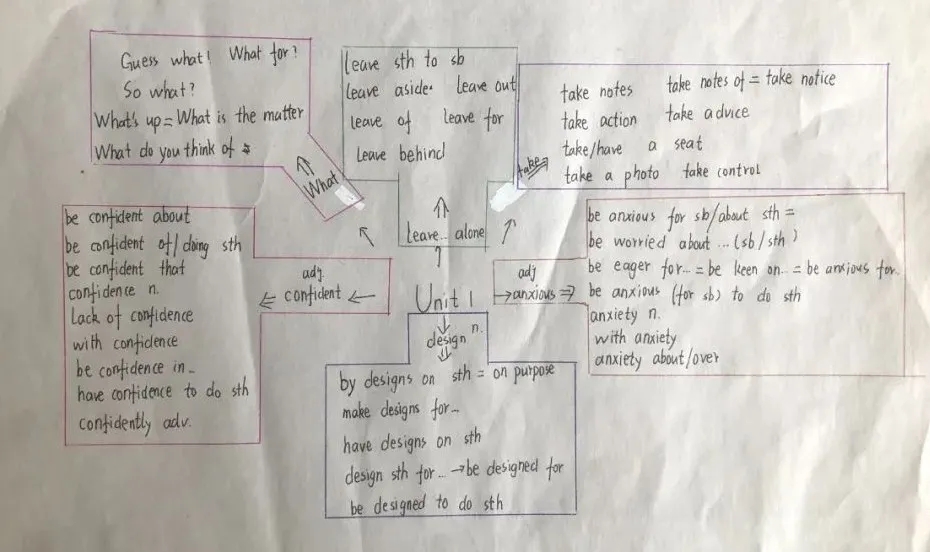 Guess what! What for?
So what?
What's up = What is the matter
What do you think of
What
leave sth to sb
leave aside. leave out
leave of leave for
leave behind
leave... alone
take notes take notes of = take notice
take action take advice
take/have a seat
take a photo take control
take
be confident about
be confident of/doing sth
be confident that
confidence n.
Lack of confidence
with confidence
be confidence in...
have confidence to do sth
confidently adv.
adj.
confident
Unit 1
adj
anxious
be anxious for sb/about sth =
be worried about ... (sb/sth)
be eager for... = be keen on... = be anxious for...
be anxious (for sb) to do sth
anxiety n.
with anxiety
anxiety about/over
design n.
by designs on sth = on purpose
make designs for...
have designs on sth
design sth for... → be designed for
be designed to do sth